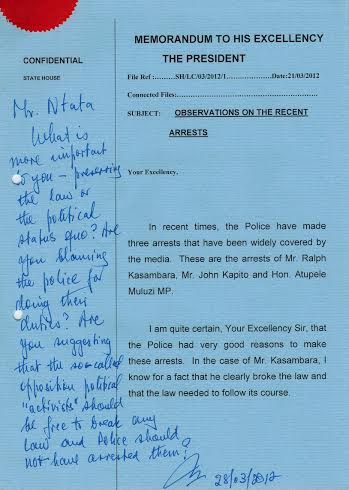 MEMORANDUM TO HIS EXCELLENCY
THE PRESIDENT
CONFIDENTIAL
STATE HOUSE
File Ref :..........SH/LC/03/2012/1....................Date:21/03/2012
Connected Files:...........................................................
SUBJECT: OBSERVATIONS ON THE RECENT
ARRESTS
Your Excellency,
In recent times, the Police have made
three arrests that have been widely covered by
the media. These are the arrests of Mr. Ralph
Kasambara, Mr. John Kapito and Hon. Atupele
Muluzi MP.
I am quite certain, Your Excellency Sir, that
the Police had very good reasons to make
these arrests. In the case of Mr. Kasambara, I
know for a fact that he clearly broke the law and
that the law needed to follow its course.
Mr. Ntata
What is
more important
to you – preserving
the law or
the political
status quo? Are
you blaming
the police for
doing their
duties? Are
you suggesting
that the so-called
opposition political
"activists" should
be free to break any
law and Police should
not have arrested them?
28/03/2012